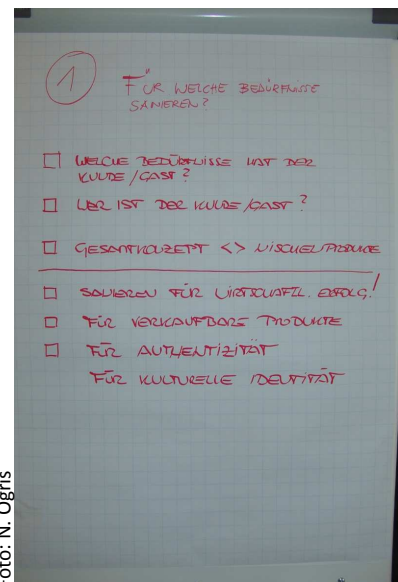 1
FÜR WELCHE BEDÜRFNISSE
SANIEREN?
WELCHE BEDÜRFNISSE HAT DER
KUNDE / GAST?
WER IST DER KUNDE / GAST?
GESAMTKONZEPT <> NISCHENPRODUKTE
SANIEREN FÜR WIRTSCHAFTL. ERFOLG!
FÜR VERKAUFBARE PRODUKTE
FÜR AUTHENTIZITÄT
FÜR KULTURELLE IDENTITÄT
Foto: N. Ogris